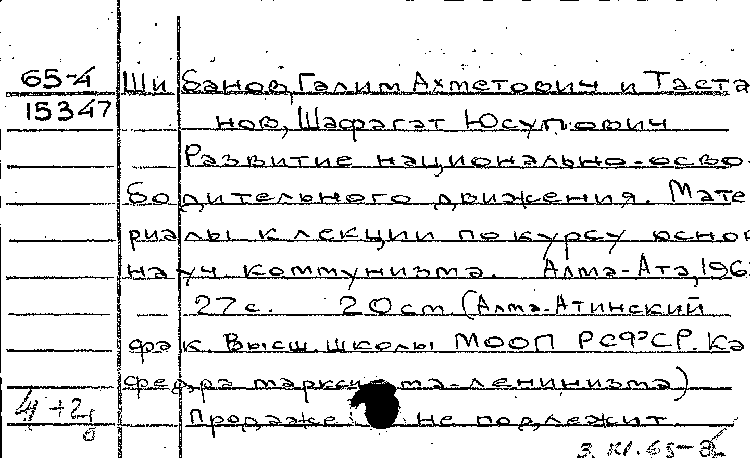 65-4 Шибанов, Галим Ахметович и Таста
15347 нов, Шафагат Юсупович
Развитие национально-осво-
бодительного движения. Мате
риалы к лекции по курсу основ
науч. коммунизма. Алма-Ата, 196
27 с. 20 см. (Алма-Атинский
фак. Высш. школы МООП РСФСР. Ка
федра марксизма-ленинизма)
4+2 Продаже не подлежит.